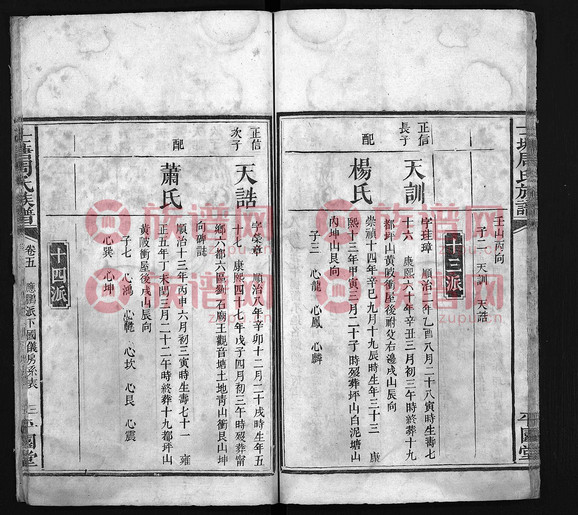 壬山丙向
子二 天訓 天誥
十三派
正信長子
天訓
字珪璋 順治二年乙酉八月二十八寅時生壽七
十六 康熙六十年辛丑三月初三午時終葬十九
都坪山黃陂衝屋後祔父右邊戌山辰向
配
楊氏
崇禎十四年辛巳九月十九辰時生年三十三 康
熙十三年甲寅三月二十子時歿葬坪山白泥塘山
丙坤山艮向
子三 心龍 心鳳 心麟
正信次子
天誥
字榮章 順治八年辛卯十二月二十戌時生年五
十七 康熙四十七年戊子四月初三午時歿葬甯
鄉六都六區獅石廟王觀音塘土地靑山衝艮山坤
向碑誌
配
蕭氏
順治十三年丙申六月初三寅時生壽七十一 雍
正五年丁未閏三月二十二午時終葬十九都坪山
黃陂衝屋後戌山辰向
子七 心鴻 心乾 心坎 心艮 心震
心巽 心坤
十四派
周氏族譜
卷五
應鵬派下國儀房系表